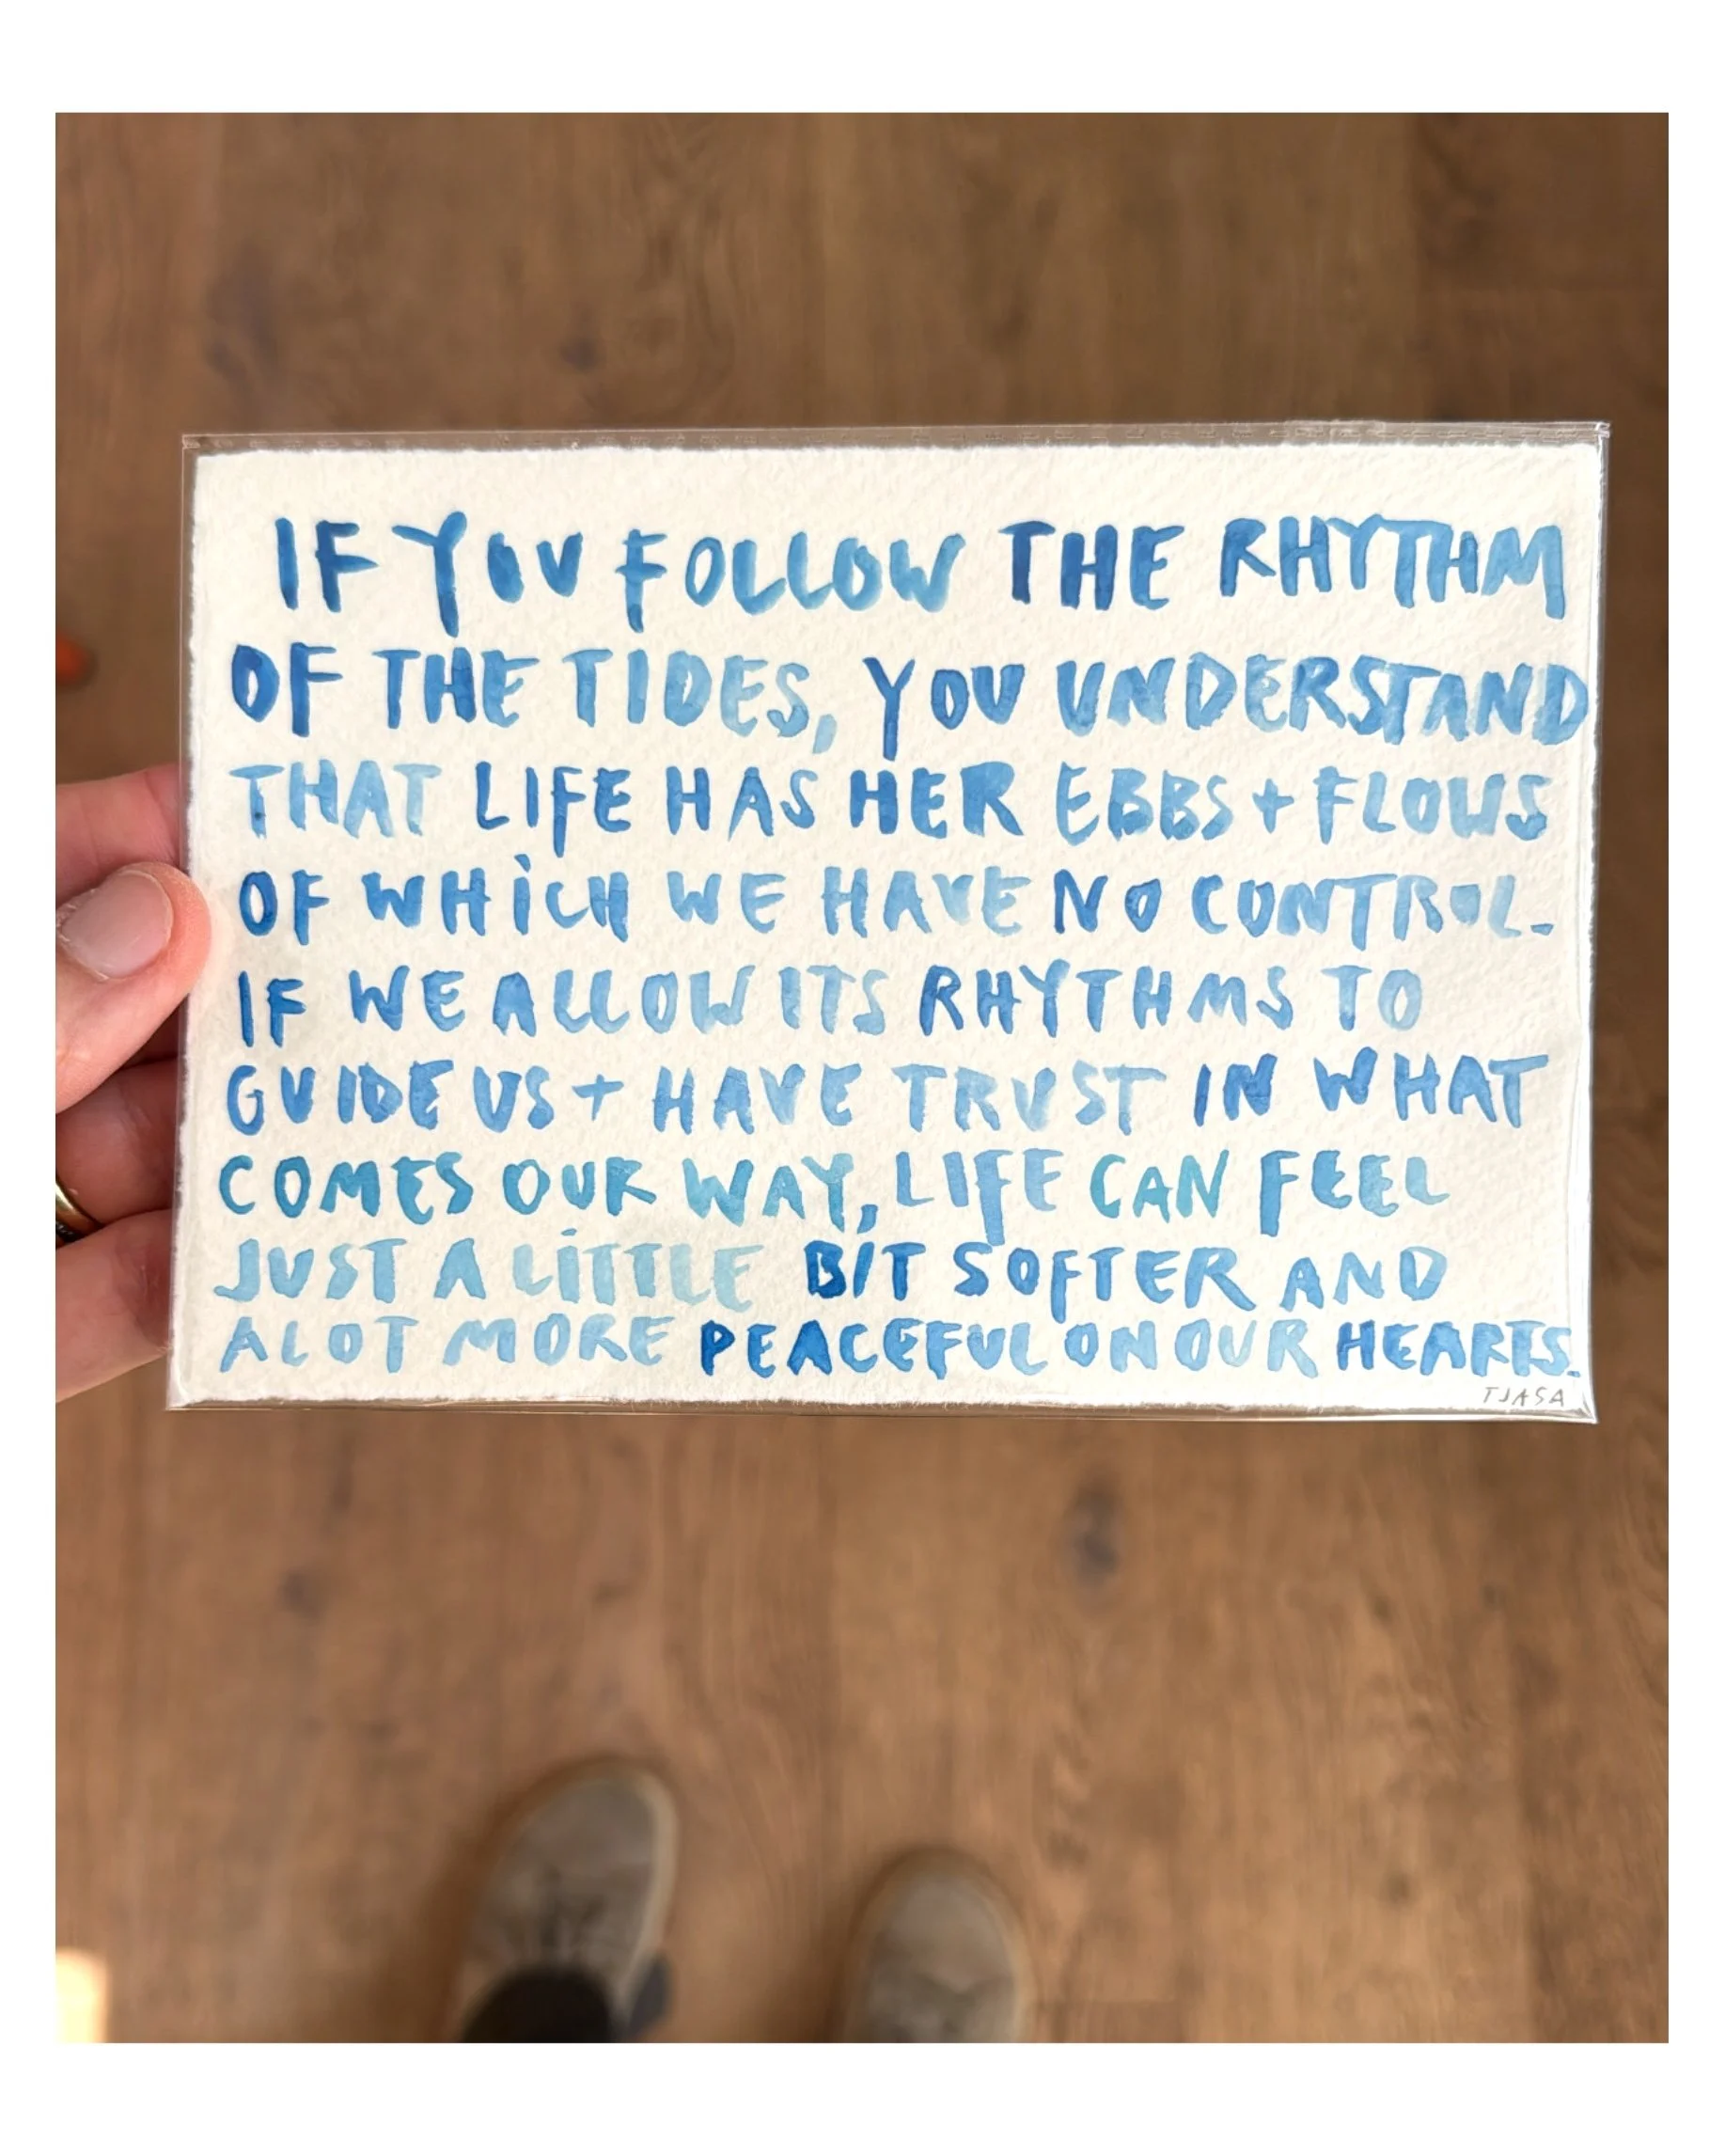 IF YOU FOLLOW THE RHYTHM
OF THE TIDES, YOU UNDERSTAND
THAT LIFE HAS HER EBBS + FLOWS
OF WHiCH WE HAVE NO CONTROL.
IF WE ALLOW ITS RHYTHMS TO
GUIDE US + HAVE TRUST IN WHAT
COMES OUR WAY, LIFE CAN FEEL
JUST A LiTTLE BIT SOFTER AND
A LOT MORE PEACEFUL ON OUR HEARTS.
TJASA